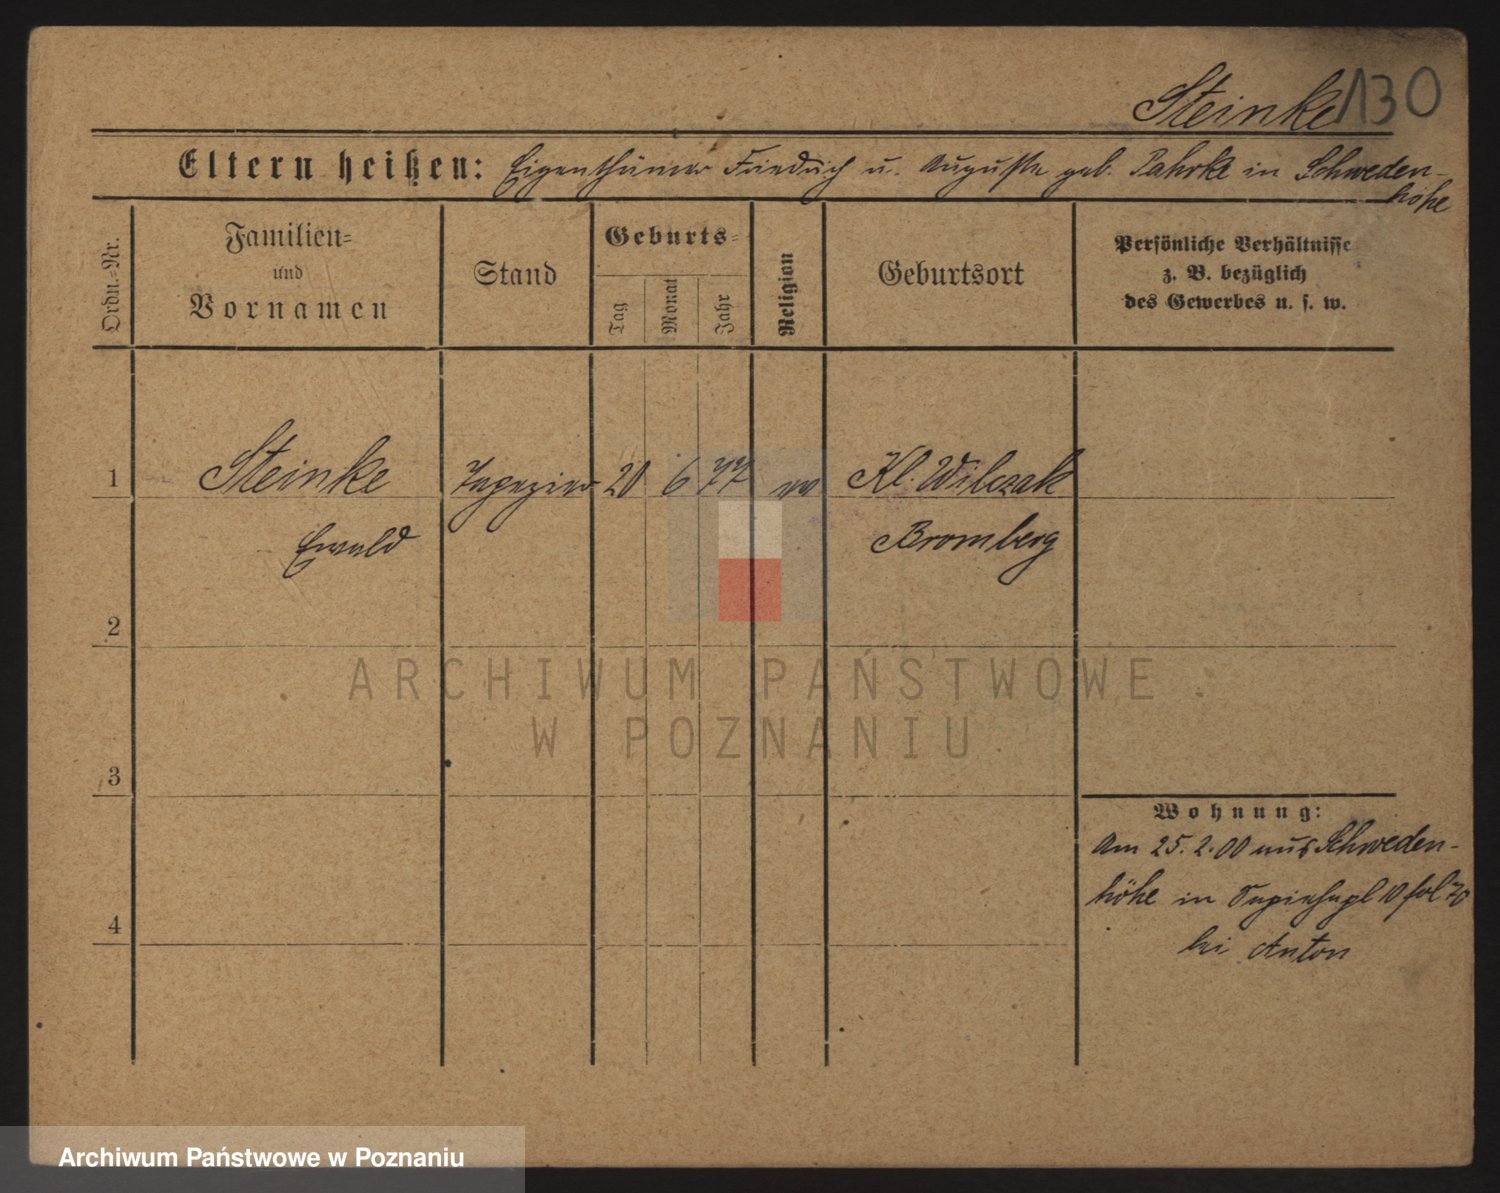 Steinke 130
Eltern heißen: Eigenthümer Friedrich u. Auguste geb. Pahrke in Schweden-
höhe
Ordn.-Nr.
Familien-
und
Vornamen
Stand
Geburts-
Tag
Monat
Jahr
Religion
Geburtsort
Persönliche Verhältnisse
z. B. bezüglich
des Gewerbes u. s. w.
1 Steinke Tapezier 20 6 77 ev Kl. Wilczak
Ewald Bromberg
2
ARCHIWUM PAŃSTWOWE
W POZNANIU
3
Wohnung:
Am 25.2.00 aus Schweden-
höhe in 10
4
bei Anton
Archiwum Państwowe w Poznaniu